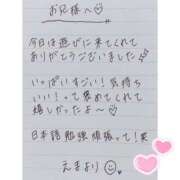 お兄様へ♡
今日は遊びに来てくれて
ありがとうございました
いっぱいすごい!気持ち
いい!って褒めてくれて
嬉しかったよ〜♡
日本語勉強頑張って!笑
えまより☺